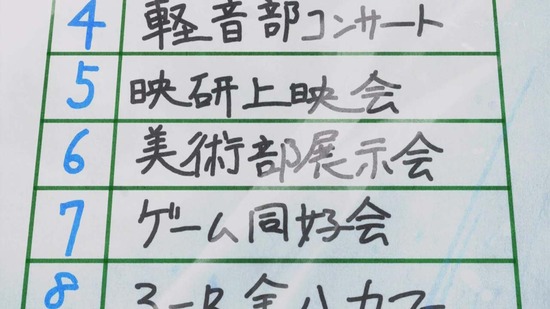 4 軽音部コンサート
5 映研上映会
6 美術部展示会
7 ゲーム同好会
8